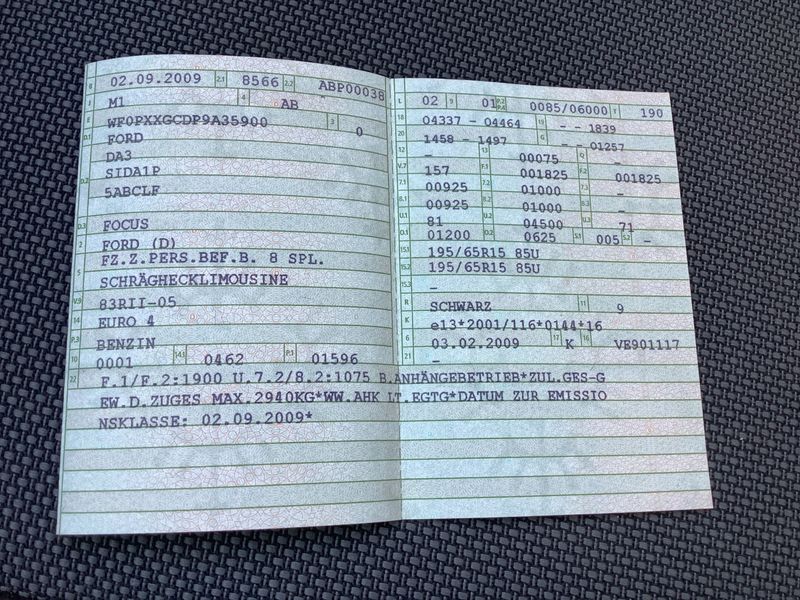 B 02.09.2009 2.1 8566 2.2 ABP00038
J M1 4 AB
E WF0PXXGCDP9A35900 3 0
D.1 FORD
D.2 DA3
SIDA1P
5ABCLF
D.3 FOCUS
2 FORD (D)
5 FZ.Z.PERS.BEF.B. 8 SPL.
SCHRÄGHECKLIMOUSINE
V.9 83RII-05
14 EURO 4
P.3 BENZIN
10 0001 14.1 0462 P.1 01596
L 02 9 01 P.2 P.4 0085/06000 T 190
18 04337 - 04464 19 - - 1839
20 1458 - 1497 G - - 01257
12 - 13 00075 Q -
V.7 157 F.1 001825 F.2 001825
7.1 00925 7.2 01000 7.3 -
8.1 00925 8.2 01000 8.3 -
U.1 81 U.2 04500 U.3 71
O.1 01200 O.2 0625 S.1 005 S.2 -
15.1 195/65R15 85U
15.2 195/65R15 85U
15.3 -
R SCHWARZ 11 9
K e13*2001/116*0144*16
6 03.02.2009 17 K 16 VE901117
21 -
22 F.1/F.2:1900 U.7.2/8.2:1075 B.ANHÄNGEBETRIEB*ZUL.GES-G
EW.D.ZUGES MAX.2940KG*WW.AHK LT.EGTG*DATUM ZUR EMISSIO
NSKLASSE: 02.09.2009*